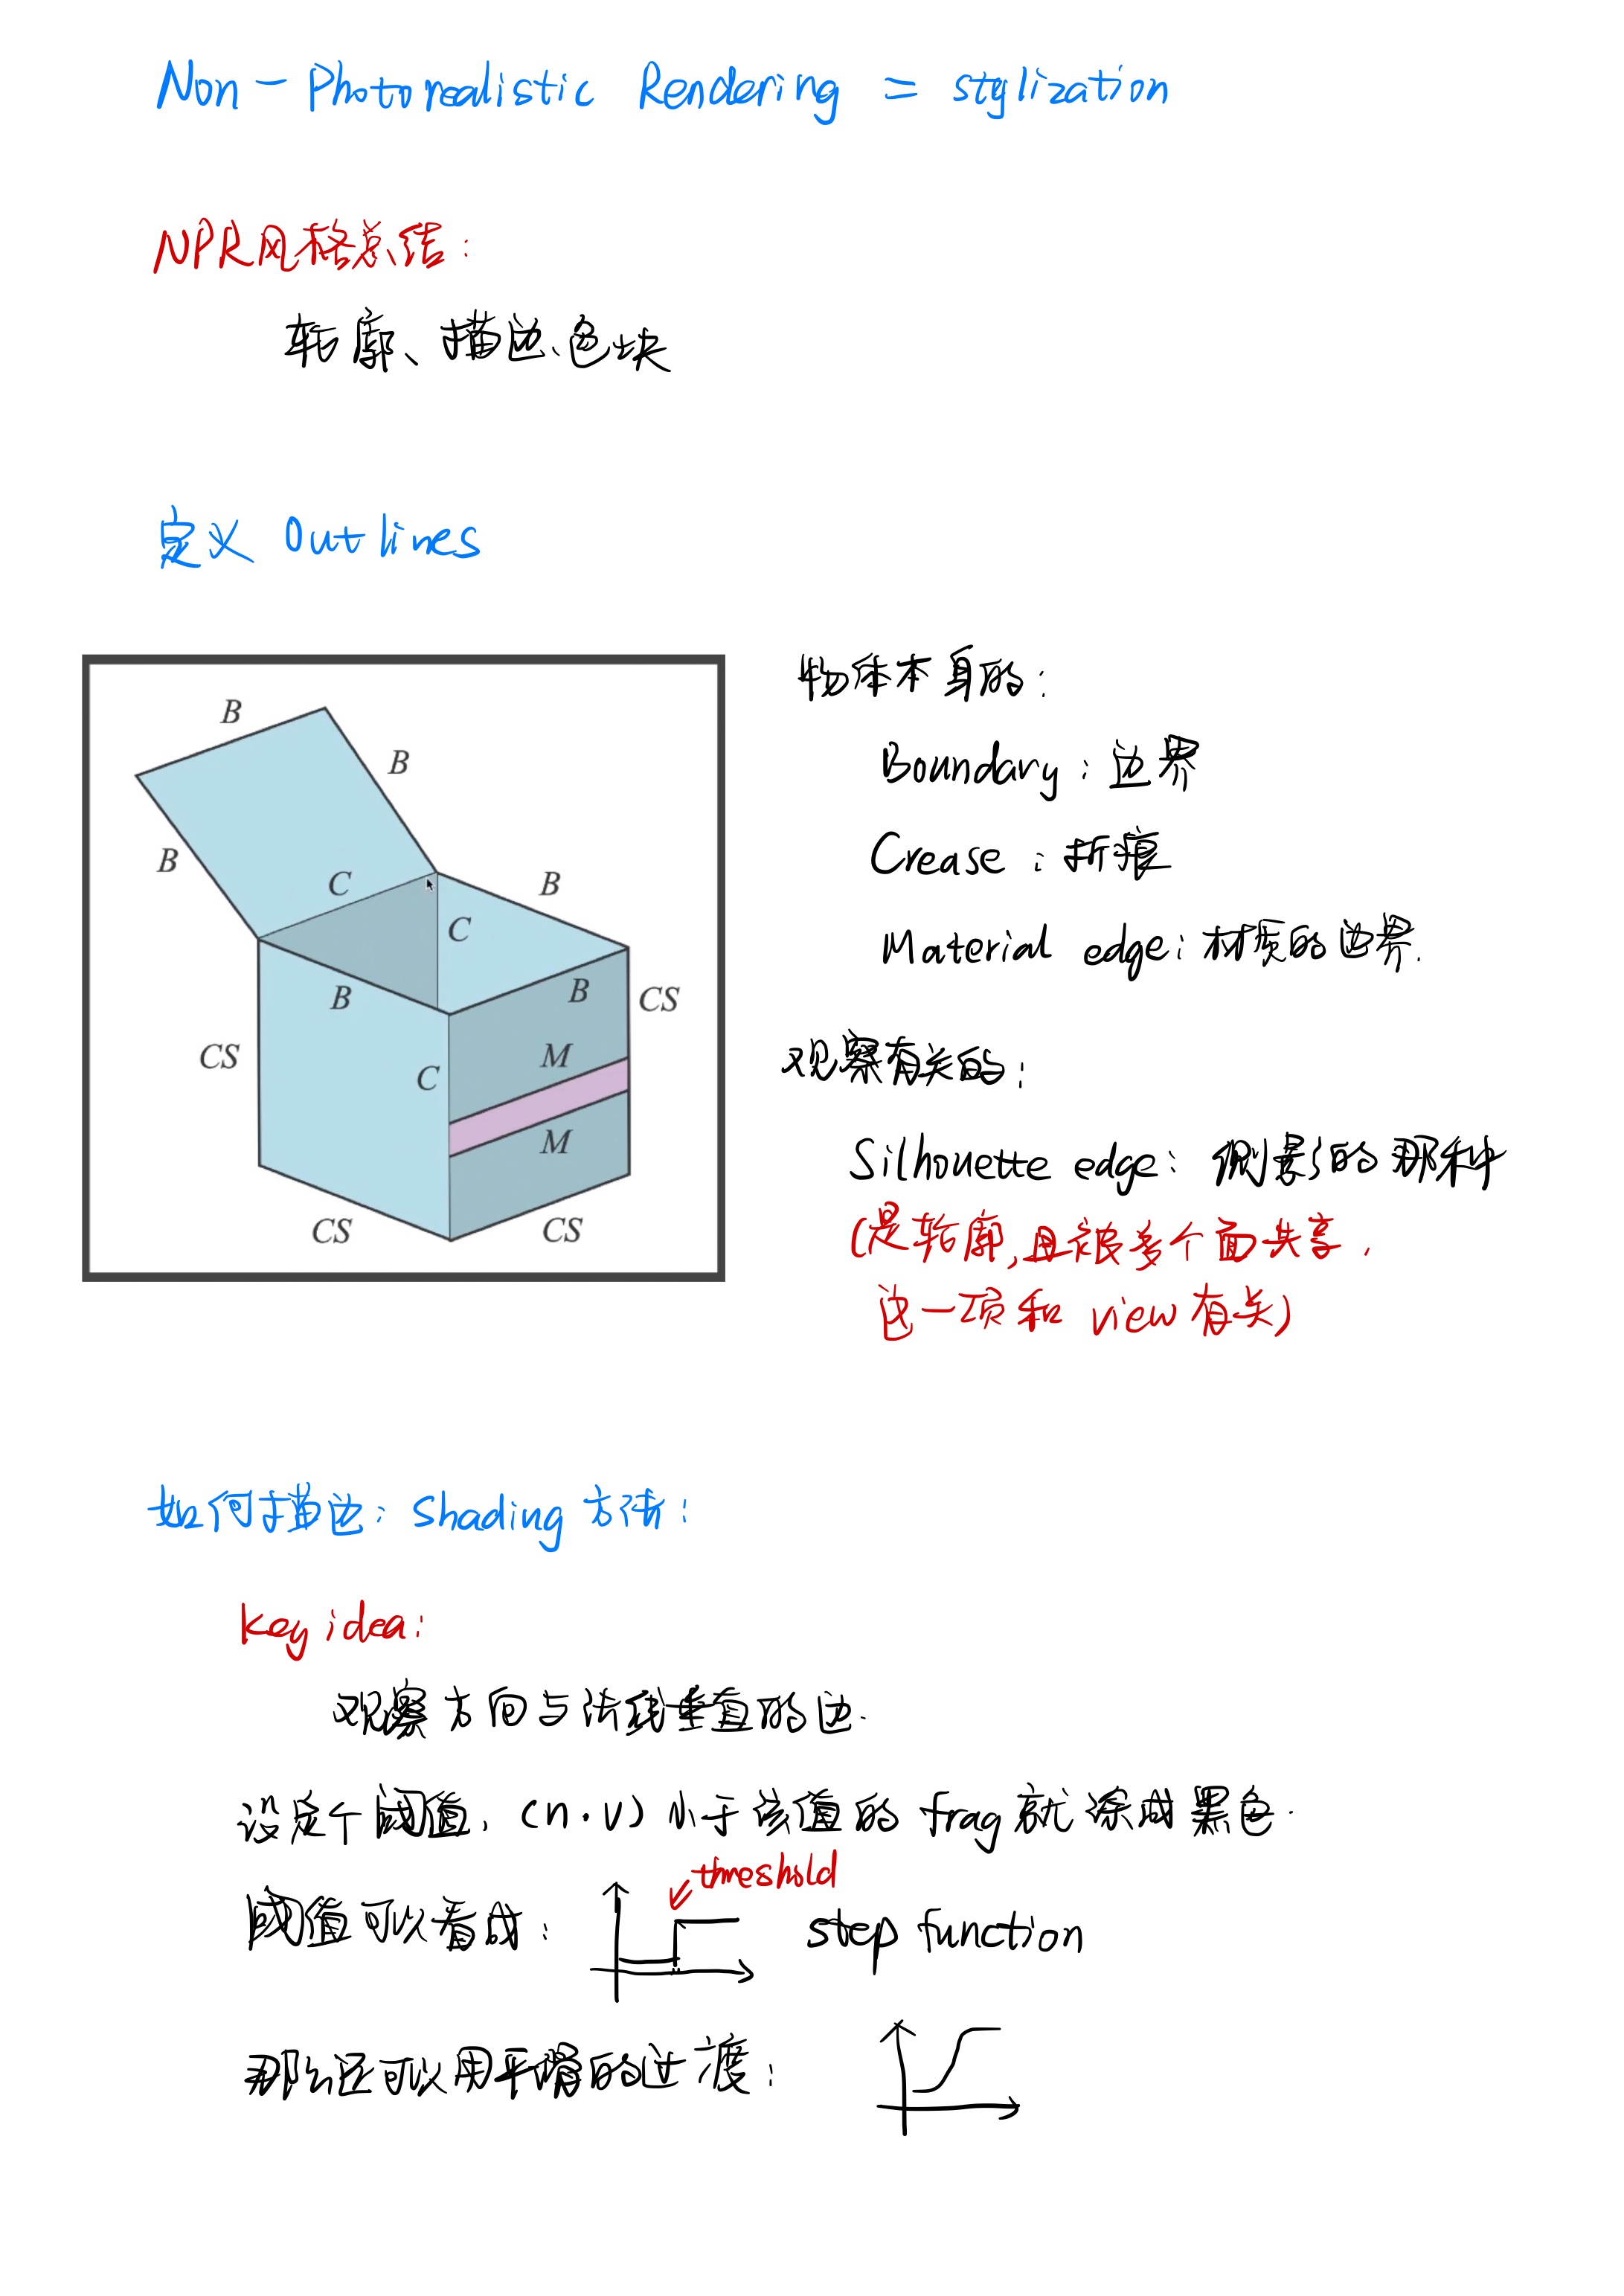 Non-Photorealistic Rendering = stylization
NPR风格总结:
轮廓、描边、色块
定义 Outlines
B
B
B
C
B
C
B
B
CS
CS
M
C
M
CS
CS
物体本身的:
Boundary: 边界
Crease: 折痕
Material edge: 材质的边界.
观察有关的:
Silhouette edge: 侧影的那种
(是轮廓,且被多个面共享,
这一项和 view 有关)
如何描边: Shading 方法:
Key idea:
观察方向与法线垂直的边.
设定个阈值, (n·v) 小于该值的 frag 就涂成黑色.
threshold
阈值可以看成: step function
那么还可以用平滑的过渡: